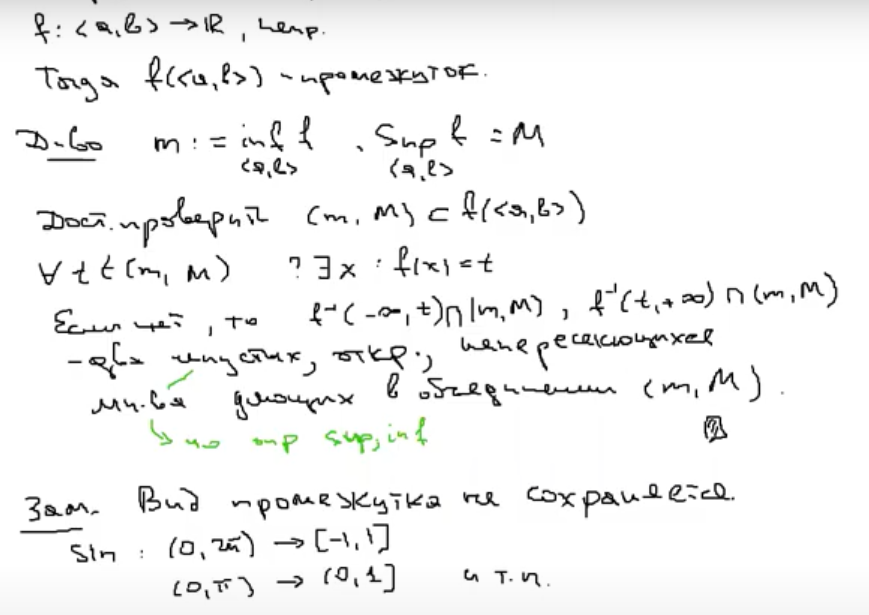 f: <a,b> → ℝ, непр.
Тогда f(<a,b>) - промежуток.
Д-во m := inf f , sup f = M
<a,b> <a,b>
Дост. проверить (m, M) ⊂ f(<a,b>)
∀ t ∈ (m, M) ? ∃ x : f(x) = t
Если нет, то f⁻¹(-∞, t) ∩ (m, M), f⁻¹(t, +∞) ∩ (m, M)
- два непустых, откр., непересекающихся
мн-ва дающих в объединении (m, M).
↳ по опр sup, inf
Зам. Вид промежутка не сохраняется.
Sin : (0, 2π) → [-1, 1]
(0, π) → (0, 1] и т.п.